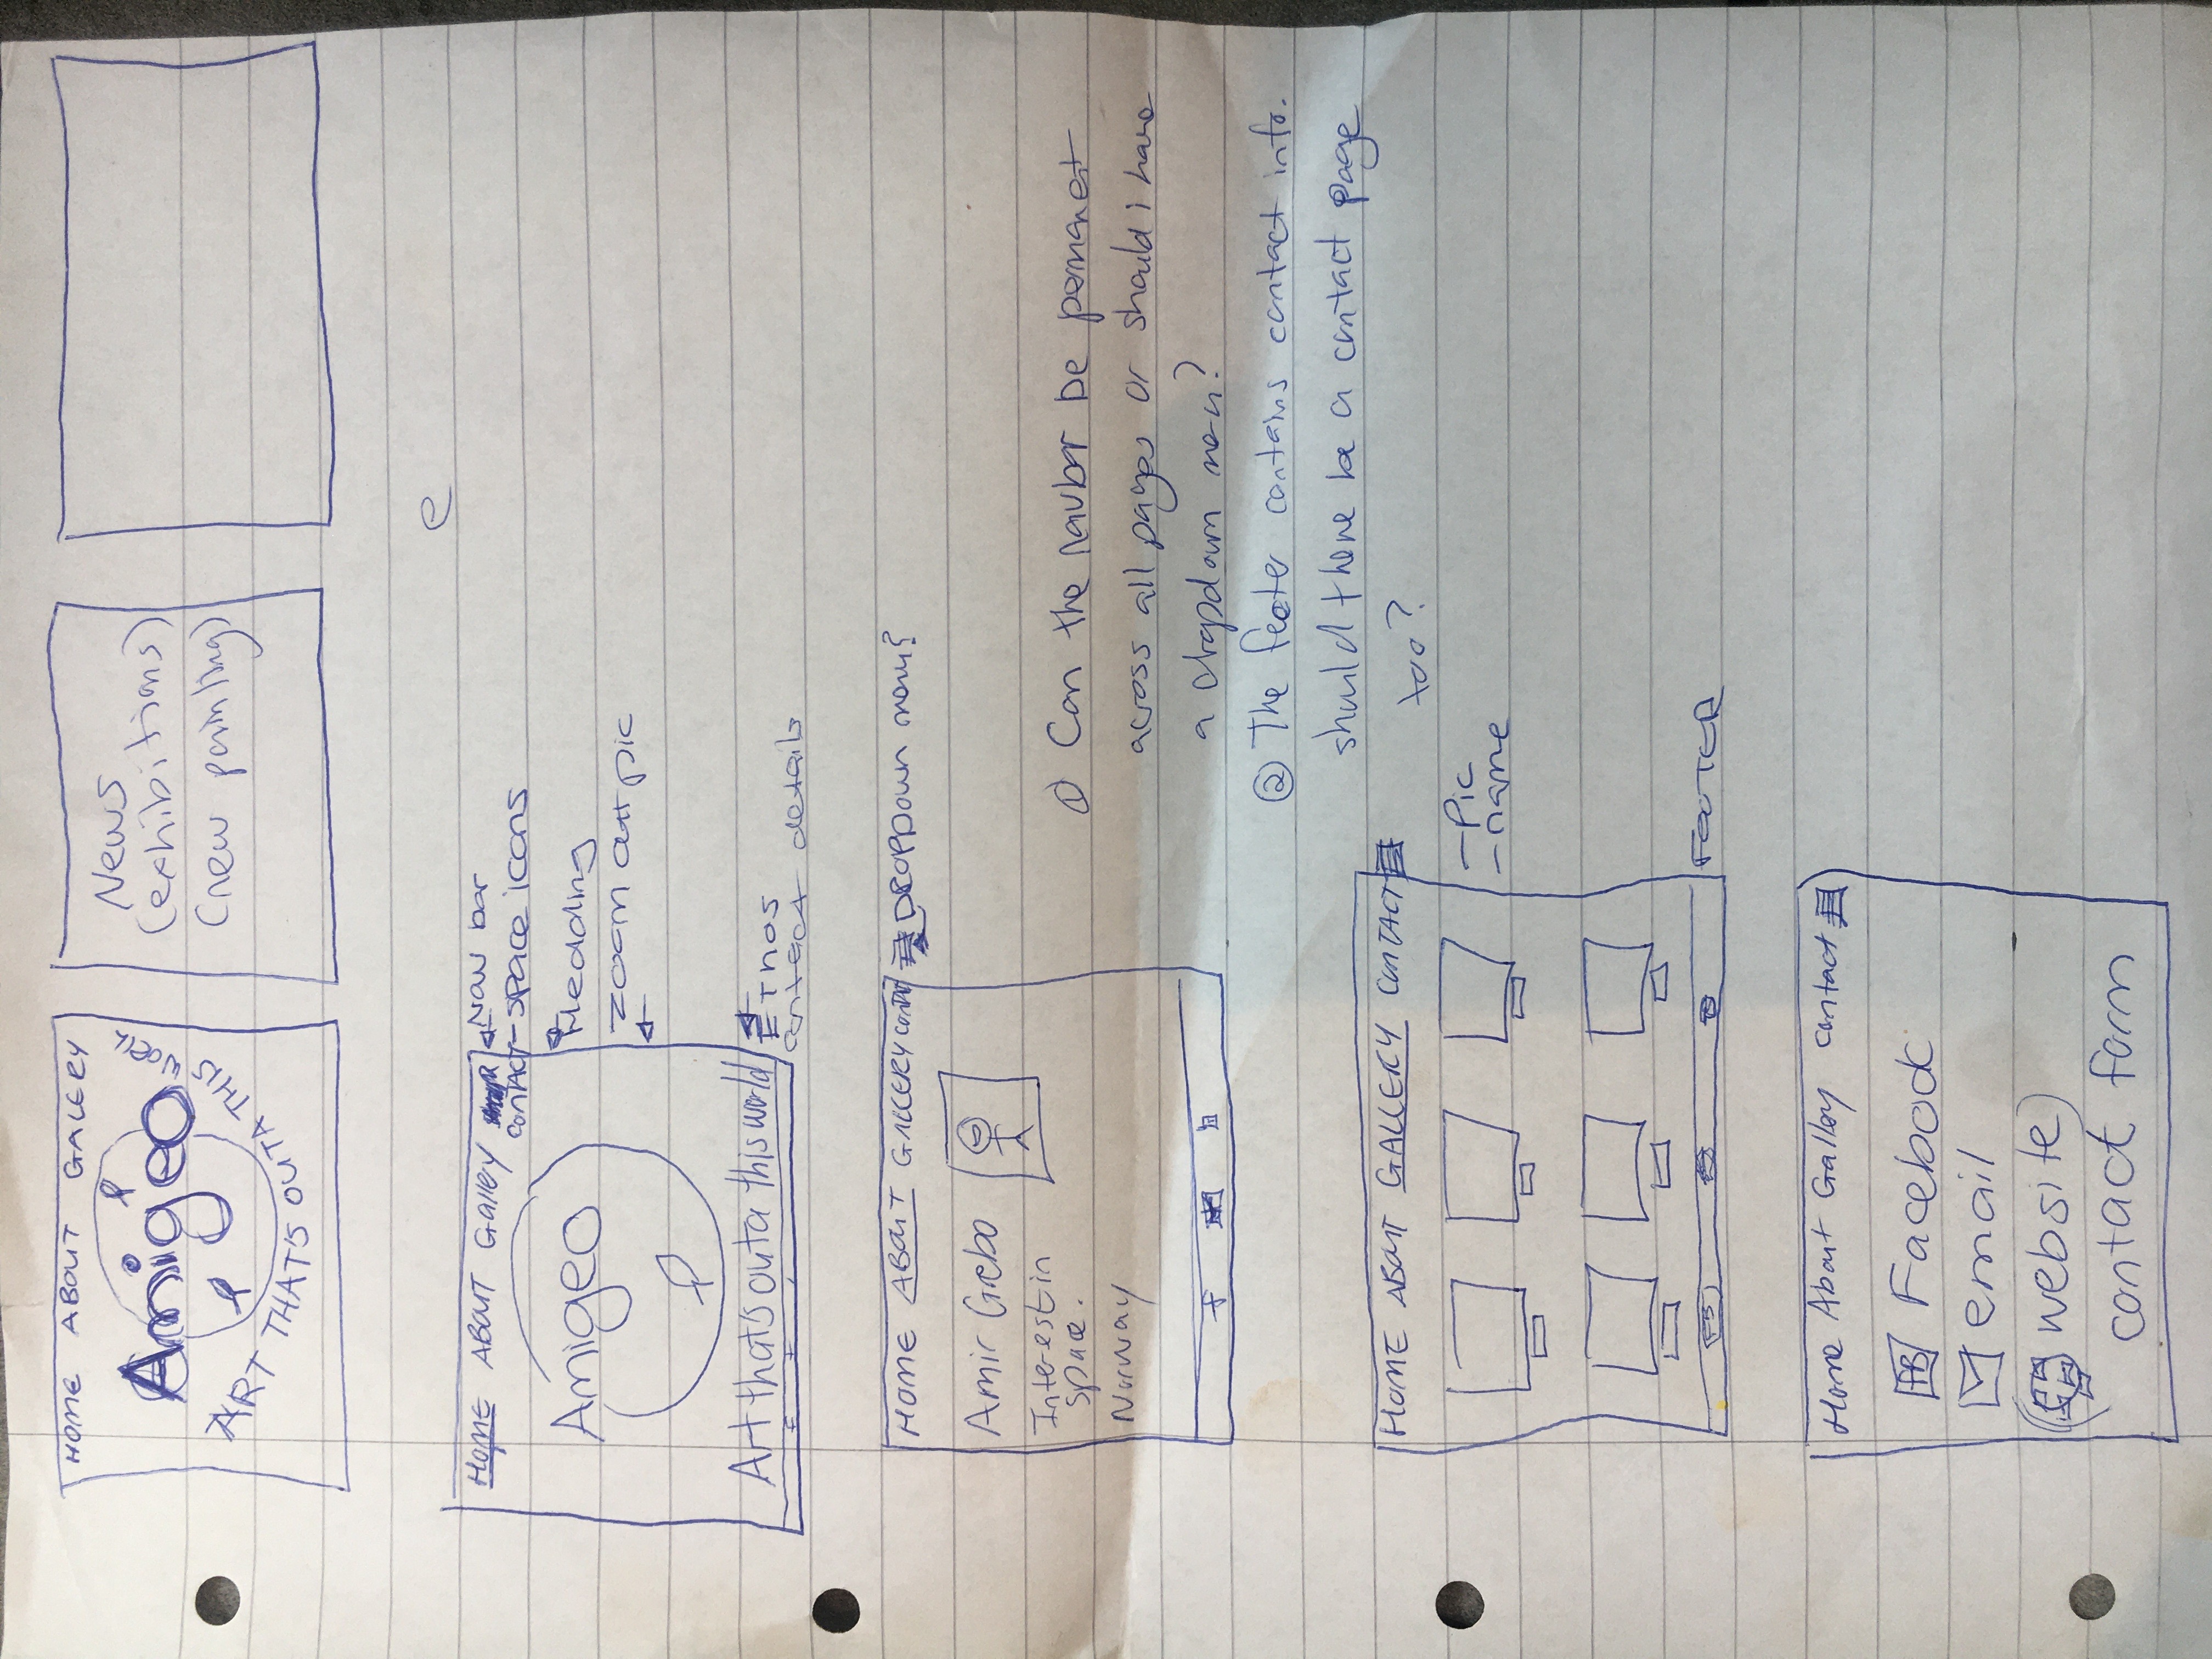 HOME ABOUT GALERY
Amigeo
ART THAT'S OUTA THIS WORLD
News
(exhibitions)
(new painting)
e
Home ABOUT Gallery
CONTACT
Nav bar
- space icons
Amigeo
Hedding
zoom att pic
Art that's outa this world
ETHOS
contact details
HOME ABOUT GALLERY CONTACT
DROPDOWN menu?
Amir Grebo
Interest in
space.
Norway
f
① Can the navbar be permanent
across all pages or should i have
a dropdown menu?
② The footer contains contact info.
should there be a contact page
too?
HOME ABOUT GALLERY CONTACT
- Pic
- name
FB
FOOTER
Home About Gallery contact
FB Facebook
email
(website)
contact form